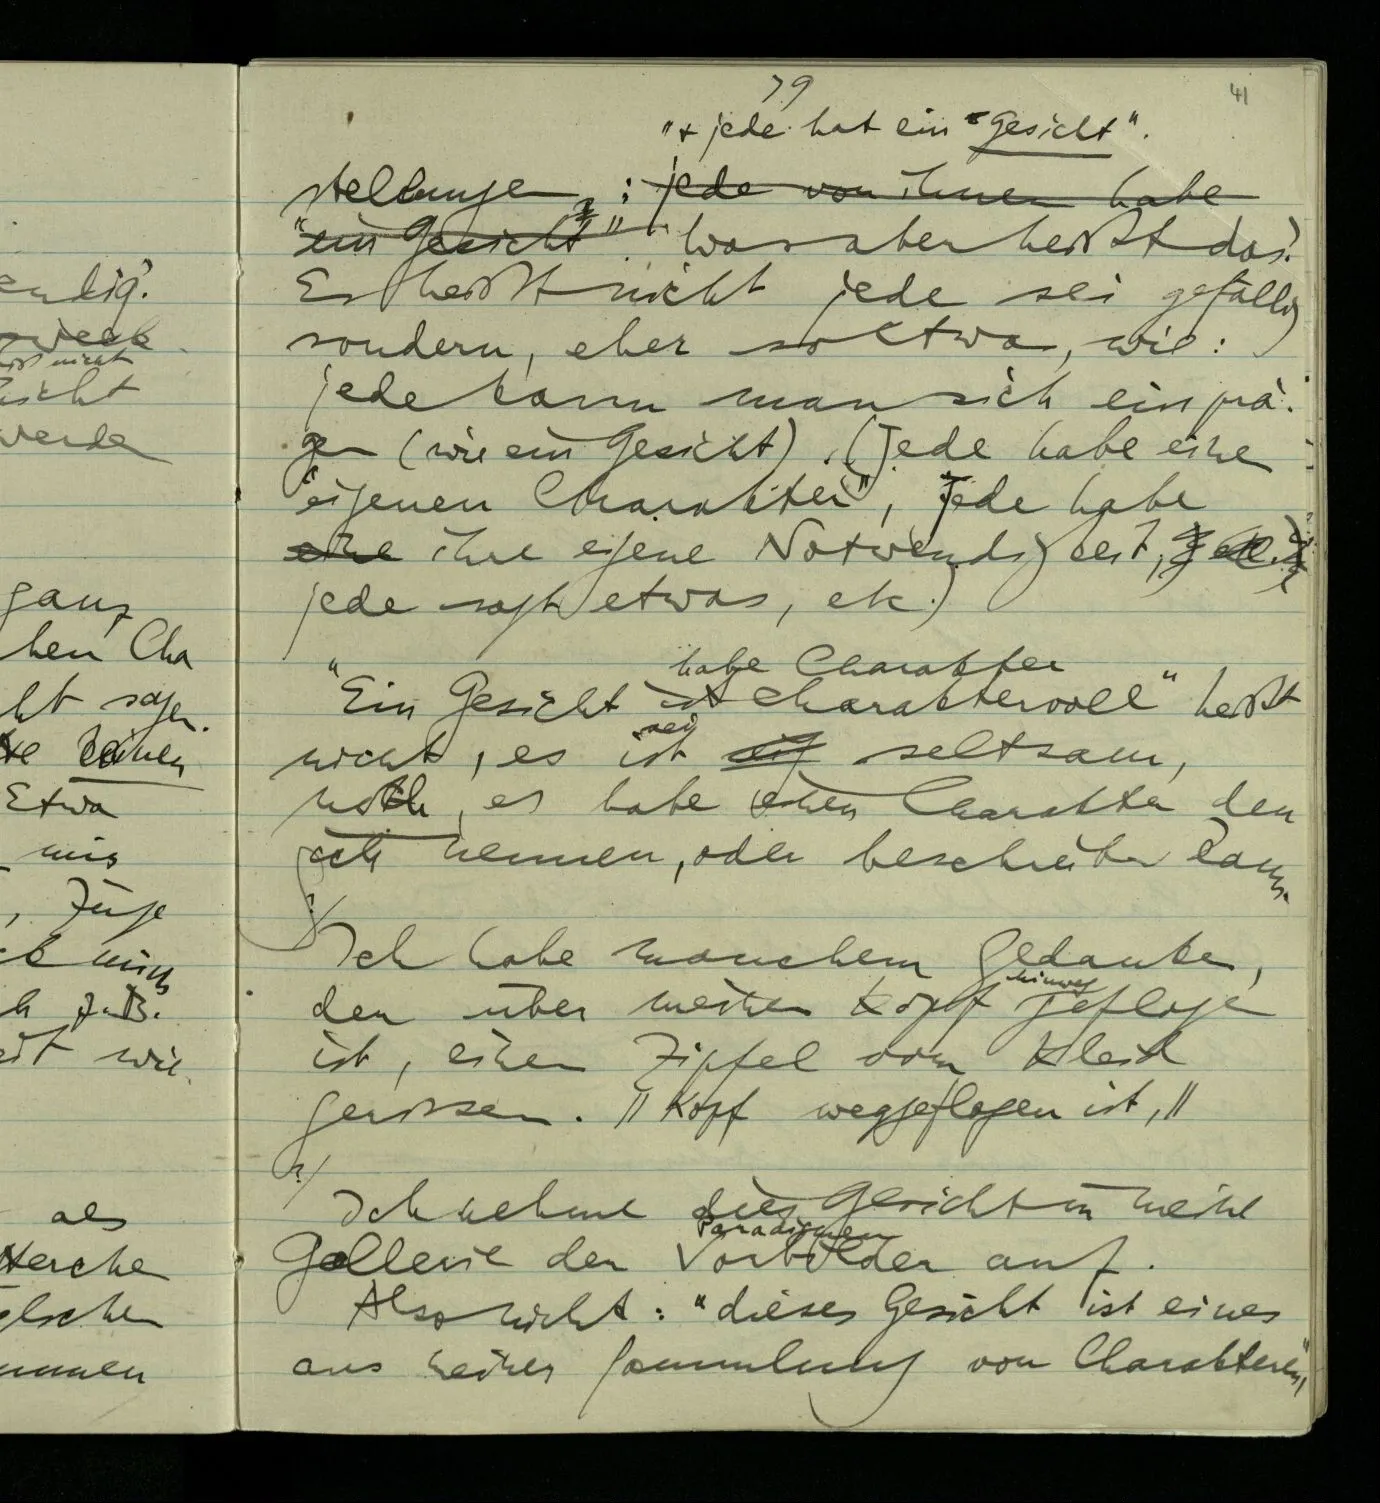 endig.
zweck
heißt nicht
nicht
werde
ganz
hen Cha
ht sagen.
keinen
Etwa
mir
, Züge
mich
h z.B.
wie
als
ferche
glichen
mmen
79
41
"+ jede hat ein "Gesicht".
stellungen: jede von ihnen habe
"ein Gesicht". Was aber heißt das?
Es heißt nicht jede sei gefällig
sondern, eher so etwa, wie:
jede kann man sich einprä-
gen (wie ein Gesicht). (Jede habe eine
eigenen Charakter", jede habe
eine ihre eigene Notwendigkeit,
jede sagt etwas, etc.)
habe Charakter
"Ein Gesicht ist charaktervoll" heißt
sei
nicht, es ist seltsam,
noch, es habe einen Charakter den
ich nennen, oder beschreiben kann.
Ich habe manchem Gedanken,
hinweg
der über meinen Kopf geflogen
ist, einen Zipfel vom Kleid
gerissen. || Kopf weggeflogen ist, ||
?/
Ich nehme dies Gesicht in meine
Paradigmen
Gallerie der Vorbilder auf.
Also nicht: "dieses Gesicht ist eines
aus meiner Sammlung von Charakteren",